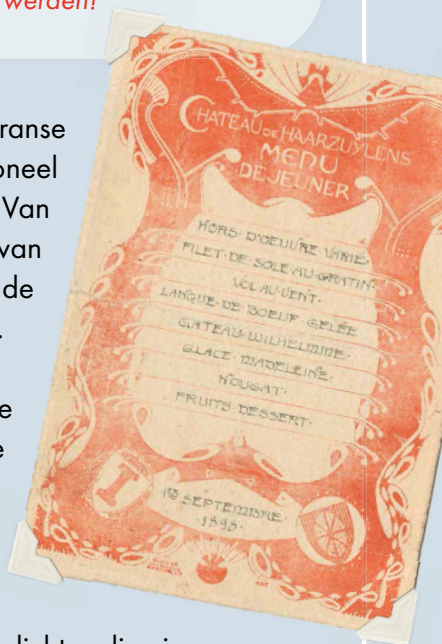 werden!
ranse
oneel
Van
van
de
.
e
e
CHATEAU DE HAARZUYLENS
MENU
DEJEUNER
HORS· D'OEUVRE VARIÉ·
FILET· DE· SOLE· AU· GRATIN·
VOL AU· VENT·
LANGUE· DE· BOEUF· GELÉE
GATEAU· WILHELMINE·
GLACE· MADELEINE·
NOUGAT·
FRUITS· DESSERT·
SEPTEMBRE·